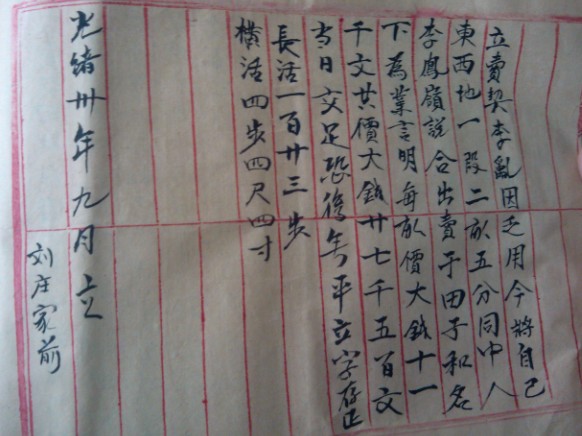 立賣契李亂因乏用今將自己
東西地一段二畝五分同中人
李鳳嶺說合出賣于田子和名
下為業言明每畝價大錢十一
千文共價大錢廿七千五百文
當日交足恐後無平立字存正
長活一百廿三步
橫活四步四尺四寸
光緒卅年九月立
刘庄家前